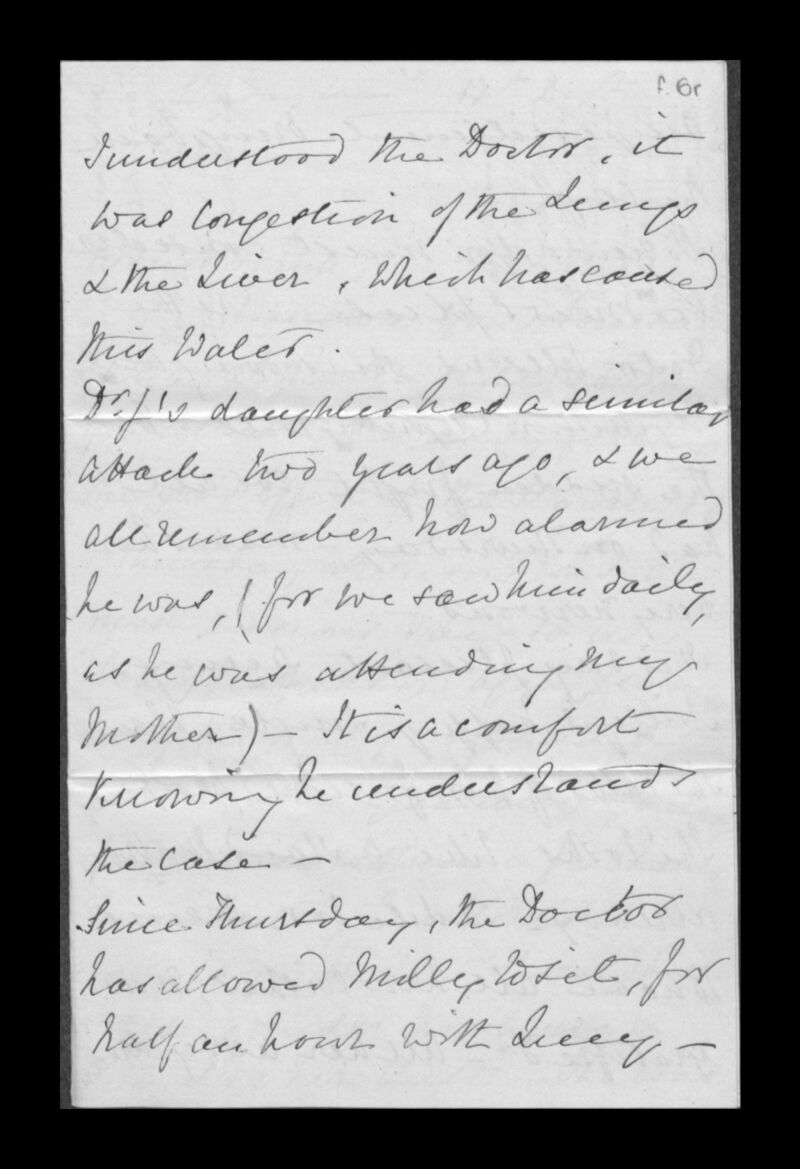 f. 6r
I understood the Doctor, it
was Congestion of the Lungs
& the Liver, which has caused
this Water.
Dr. J's daughter had a similar
attack two years ago, & we
all remember how alarmed
he was, (for we saw him daily,
as he was attending my
Mother) - It is a comfort
Knowing he understands
the case -
Since Thursday, the Doctor
has allowed Milly to sit, for
half an hour with Lucy -